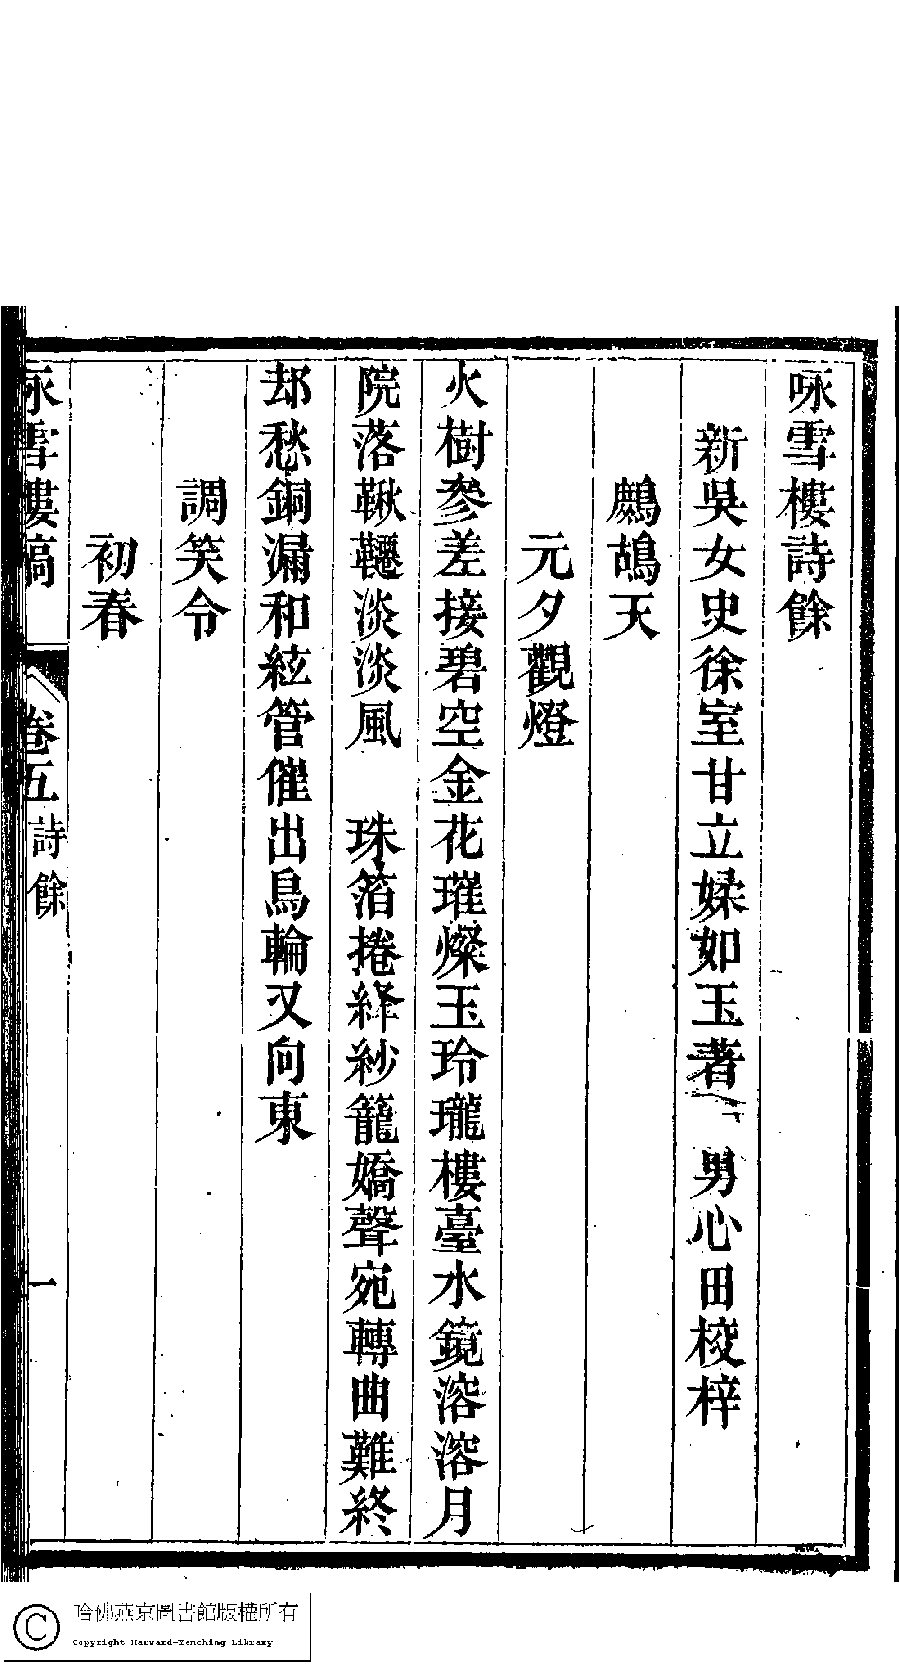 咏雪樓詩餘
新吳女史徐室甘立媃如玉著 男心田校梓
鷓鴣天
元夕觀燈
火樹參差接碧空金花璀燦玉玲瓏樓臺水鏡溶溶月
院落鞦韆淡淡風 珠箔捲絳紗籠嬌聲宛轉曲難終
却愁銅漏和絃管催出烏輪又向東
調笑令
初春
咏雪樓稿
卷五 詩餘
一
哈佛燕京圖書館版權所有
Copyright Harvard-Yenching Library